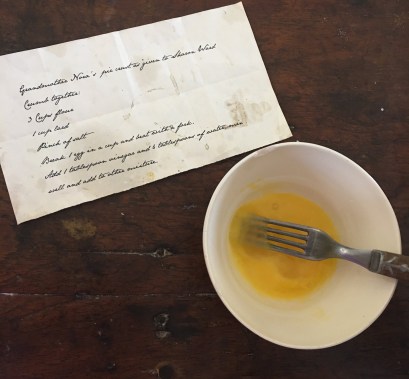 Grandmother Nina's pie crust as given to Sharon Ward
Crumb together:
3 Cups flour
1 cup lard
Pinch of salt
Break 1 egg in a cup and beat with a fork.
Add 1 tablespoon vinegar and 6 tablespoons of water.
well and add to other mixture.